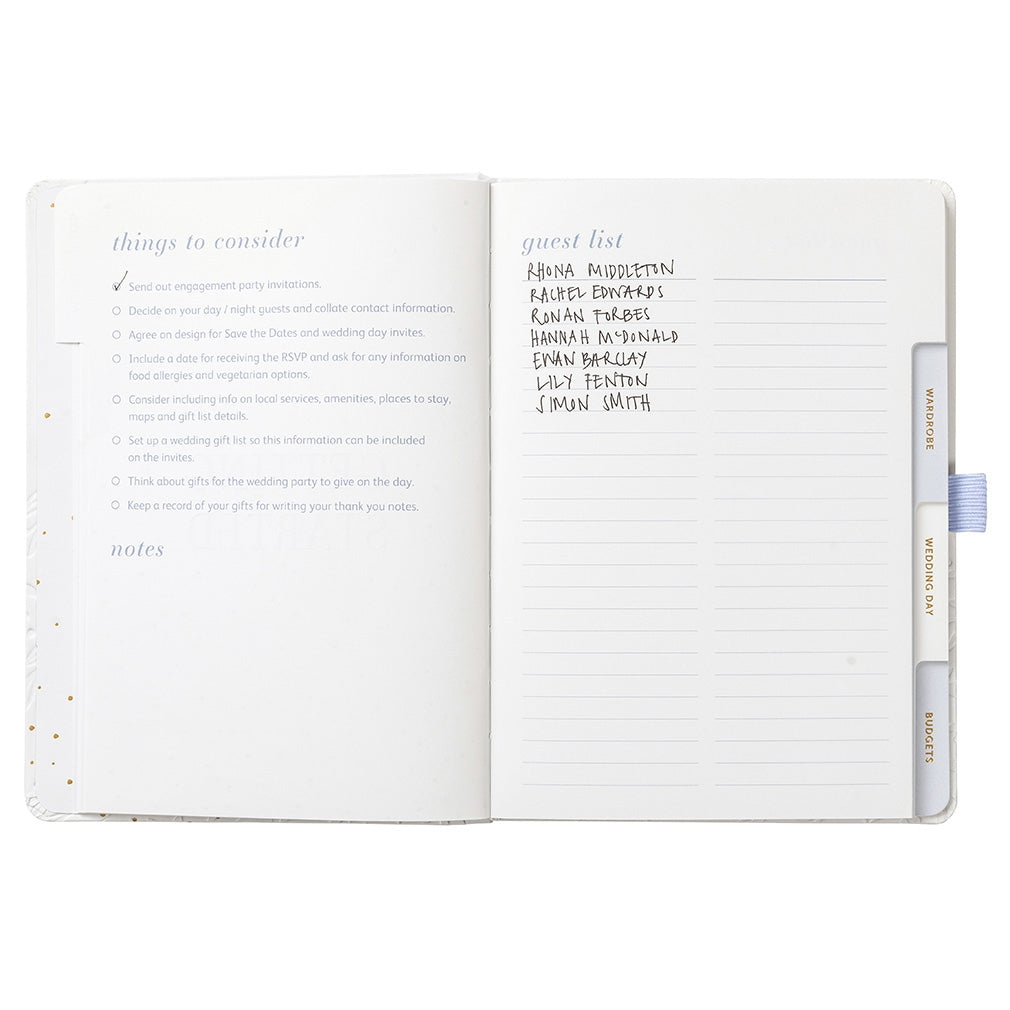 things to consider
Send out engagement party invitations.
Decide on your day / night guests and collate contact information.
Agree on design for Save the Dates and wedding day invites.
Include a date for receiving the RSVP and ask for any information on
food allergies and vegetarian options.
Consider including info on local services, amenities, places to stay,
maps and gift list details.
Set up a wedding gift list so this information can be included
on the invites.
Think about gifts for the wedding party to give on the day.
Keep a record of your gifts for writing your thank you notes.
notes
guest list
RHONA MIDDLETON
RACHEL EDWARDS
RONAN FORBES
HANNAH McDONALD
EWAN BARCLAY
LILY FENTON
SIMON SMITH
WARDROBE
WEDDING DAY
BUDGETS